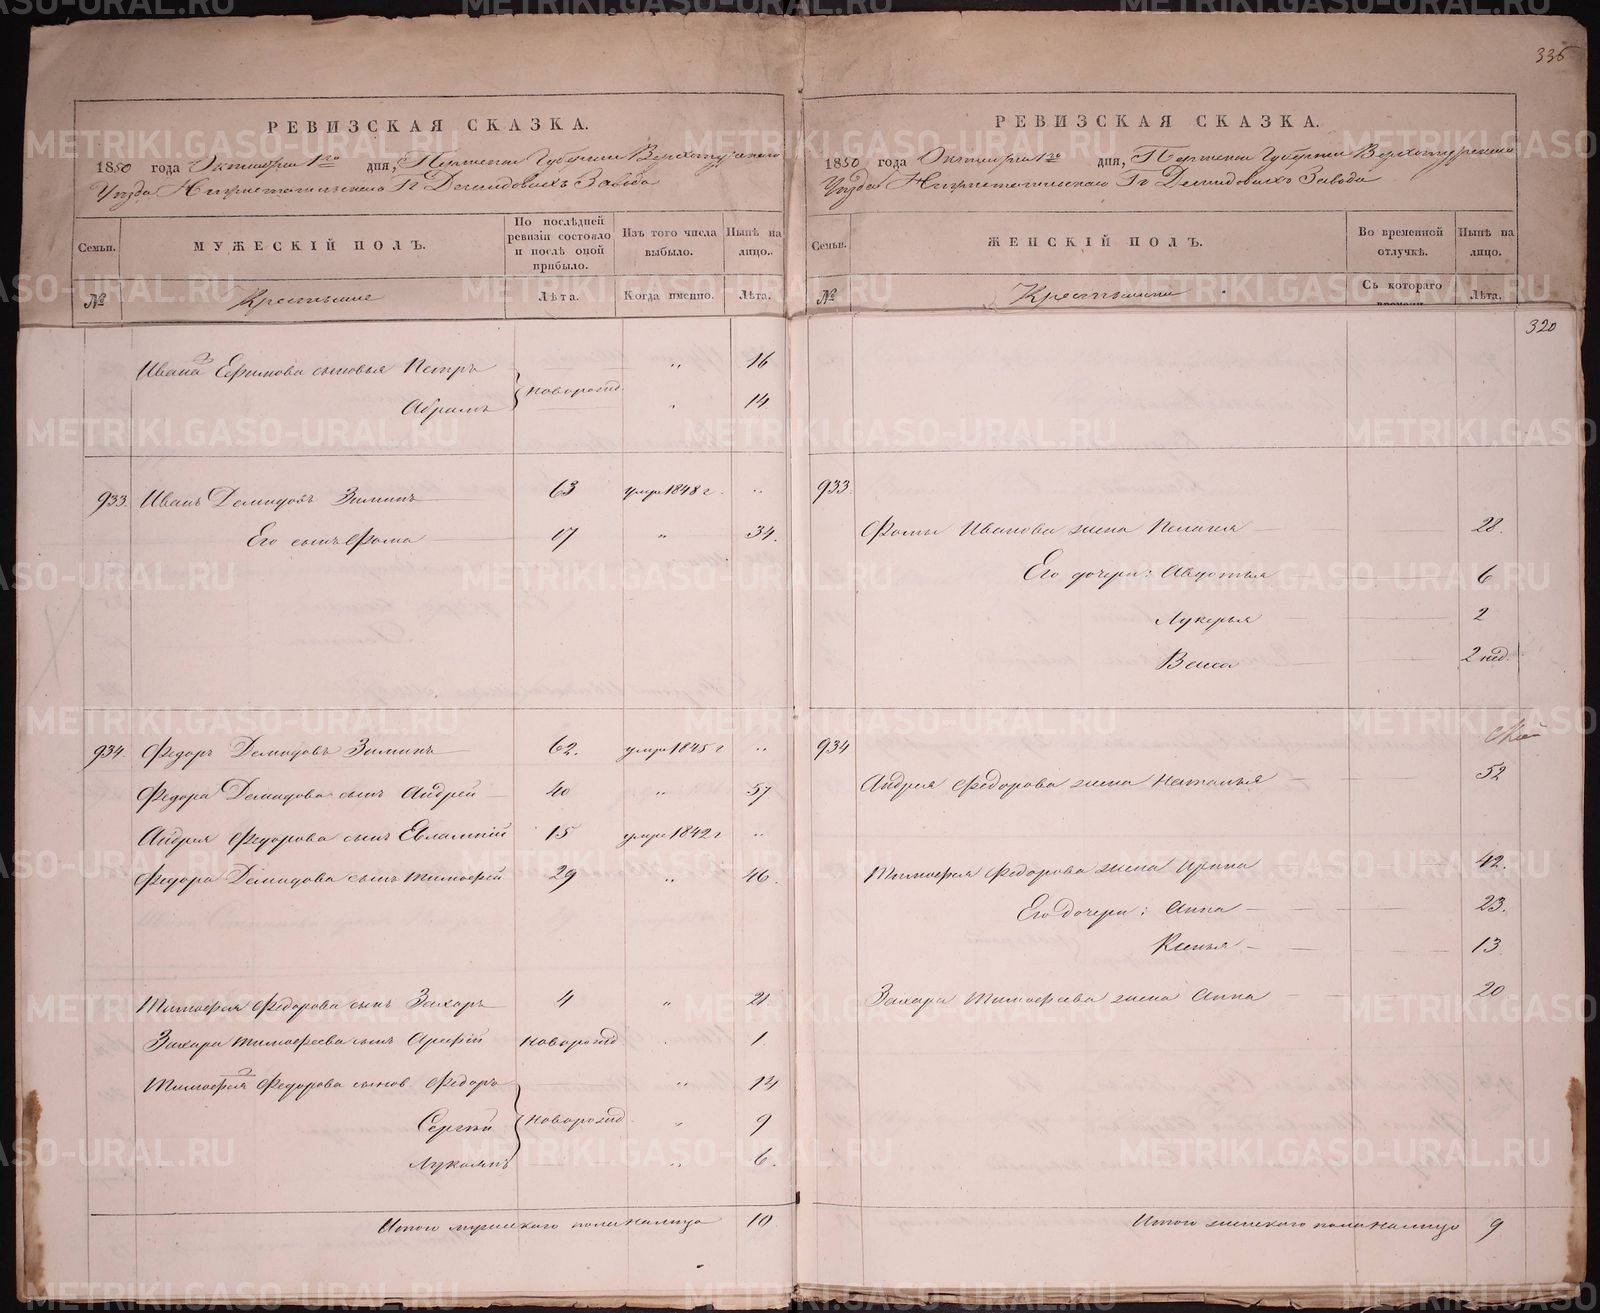 336
РЕВИЗСКАЯ СКАЗКА.
1850 года Октября 1го дня, Пермской Губернии Верхотурскаго
Уезда Нижнетагильскаго Гг Демидовыхъ Завода
Семьи.
МУЖЕСКІЙ ПОЛЪ.
По послѣдней ревизіи состояло и послѣ оной прибыло.
Изъ того числа выбыло.
Нынѣ на лицо.
№
Крестьяне
Лѣта.
Когда именно.
Лѣта.
Ивана Ефимова сыновья Петръ " 16
Абрамъ } новорожд. " 14
933. Иванъ Демидовъ Зиминъ 63 умре 1848 г. "
Его сынъ Фома 17 " 34.
934. Федоръ Демидовъ Зиминъ 62. умре 1845 г "
Федора Демидова сынъ Андрей 40 " 57
Андрея Федорова сынъ Евлампій 15 умре 1842 г "
Федора Демидова сынъ Тимофей 29 " 46.
Тимофея Федорова сынъ Захаръ 4 " 21
Захара Тимофеева сынъ новорожд 1.
Тимофея Федорова сынов. Федоръ " 12
Сергѣй } новорожд. " 9
Лукоянъ " 6.
Итого мужескаго пола налицо 10
РЕВИЗСКАЯ СКАЗКА.
1850 года Октября 1го дня, Пермской Губернии Верхотурскаго
Уезда Нижнетагильскаго Гг Демидовыхъ Завода
Семьи.
ЖЕНСКІЙ ПОЛЪ.
Во временной отлучкѣ.
Нынѣ на лицо.
№
Крестьянки
Съ котораго времени.
Лѣта.
320
933.
Фомы Иванова жена Пелагея 28.
Его дочери: Авдотья 6
Лукерья 2
Васса 2 нед.
934
Андрея Федорова жена Наталья 52
Тимофея Федорова жена Ирина 42.
Его дочери: Анна 23.
Ксенья 13
Захара Тимофеева жена Анна 20
Итого женскаго пола налицо 9
METRIKI.GASO-URAL.RU